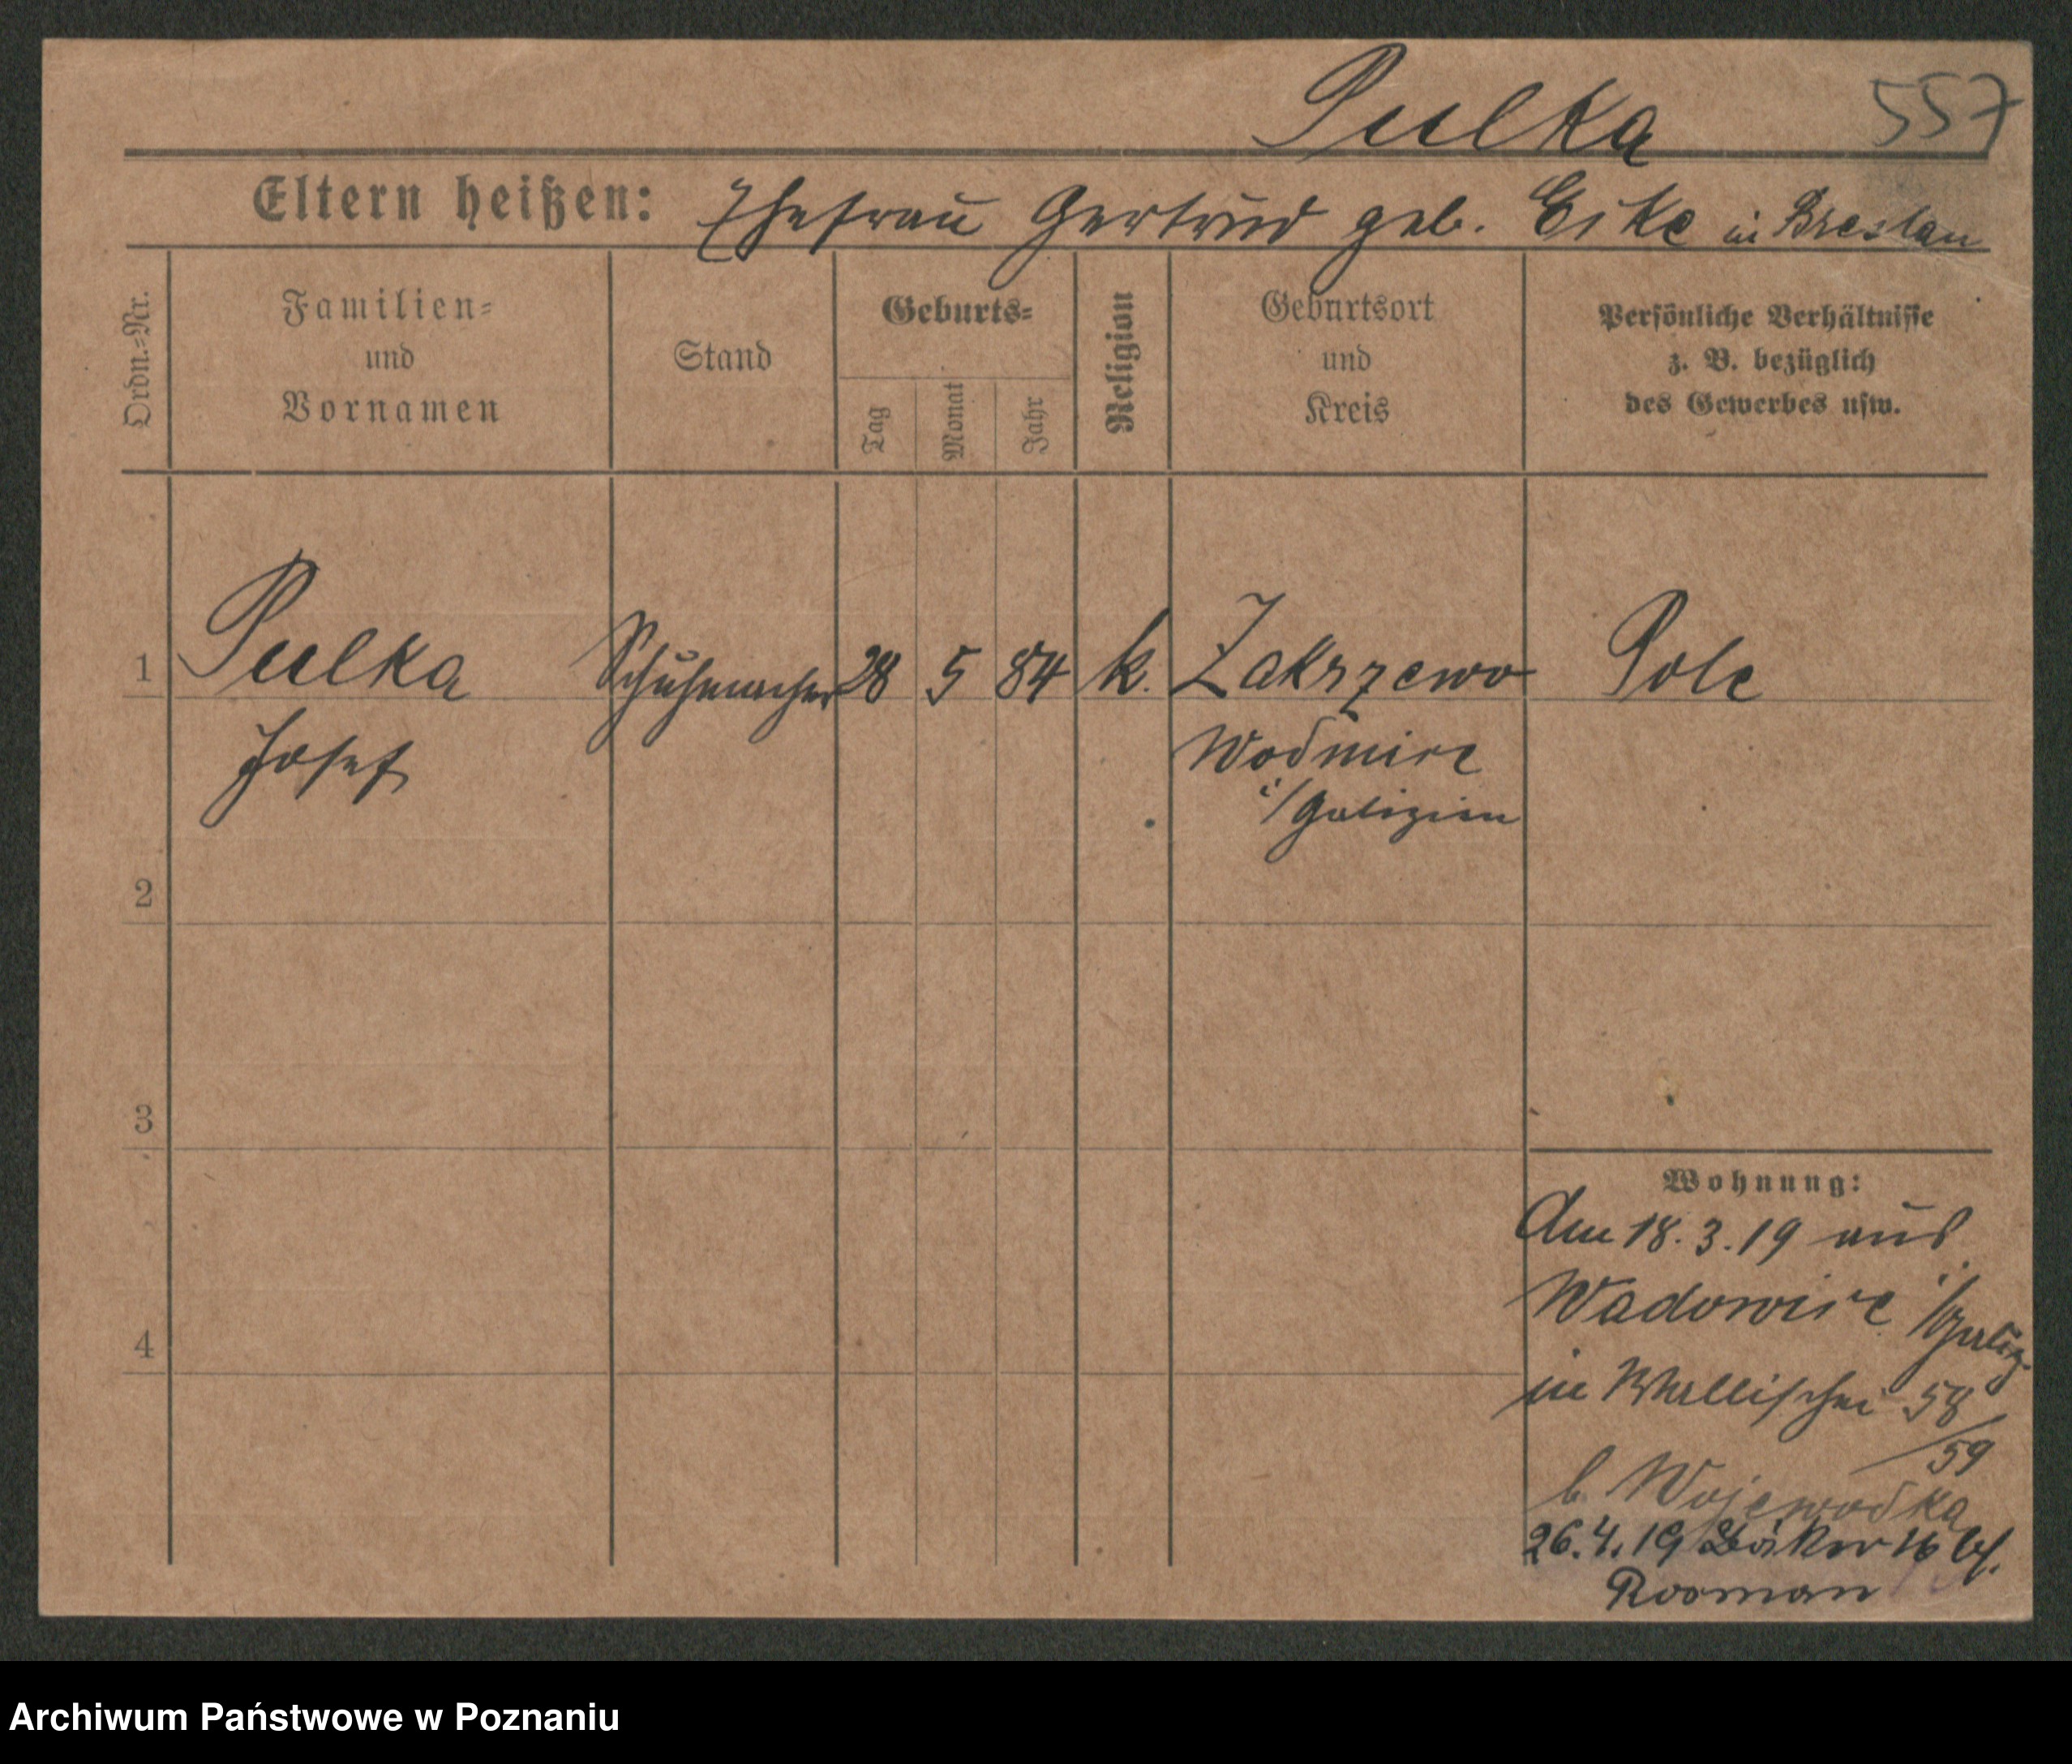 Pulka 557
Eltern heißen: Ehefrau Gertrud geb. Eike in Breslau
Ordn.=Nr.
Familien=
und
Vornamen
Stand
Geburts=
Tag
Monat
Jahr
Religion
Geburtsort
und
Kreis
Persönliche Verhältnisse
z. B. bezüglich
des Gewerbes usw.
1 Pulka Schuhmacher 28 5 84 k. Zakrzewo Pole
Josef Wodmire
i/Galizien
2
3
4
Wohnung:
Am 18.3.19 aus
Wadowire i/Galiz.
in Wallischei 58/59
b. Wojewodka
26.4.19 16 bf.
Rosman
Archiwum Państwowe w Poznaniu